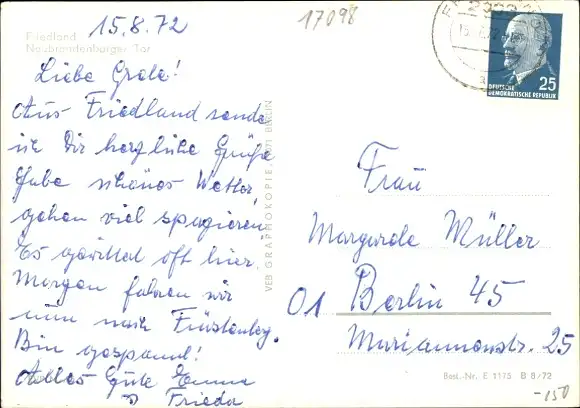 15.8.72
17098
Friedland
Neubrandenburger Tor
Liebe Grete!
Aus Friedland sende
ich Dir herzliche Grüße
Habe schönes Wetter,
gehen viel spazieren,
Es gewittert oft hier.
Morgen fahren wir
nun nach Fürstenberg.
Bin gespannt!
Alles Gute Emma
Frieda
VEB GRAPHOKOPIE BERLIN
25
DEUTSCHE
DEMOKRATISCHE REPUBLIK
Frau
Margarete Müller
01 Berlin 45
Mariannenstr. 25
Best.-Nr. E 1173 B 8/72
-150